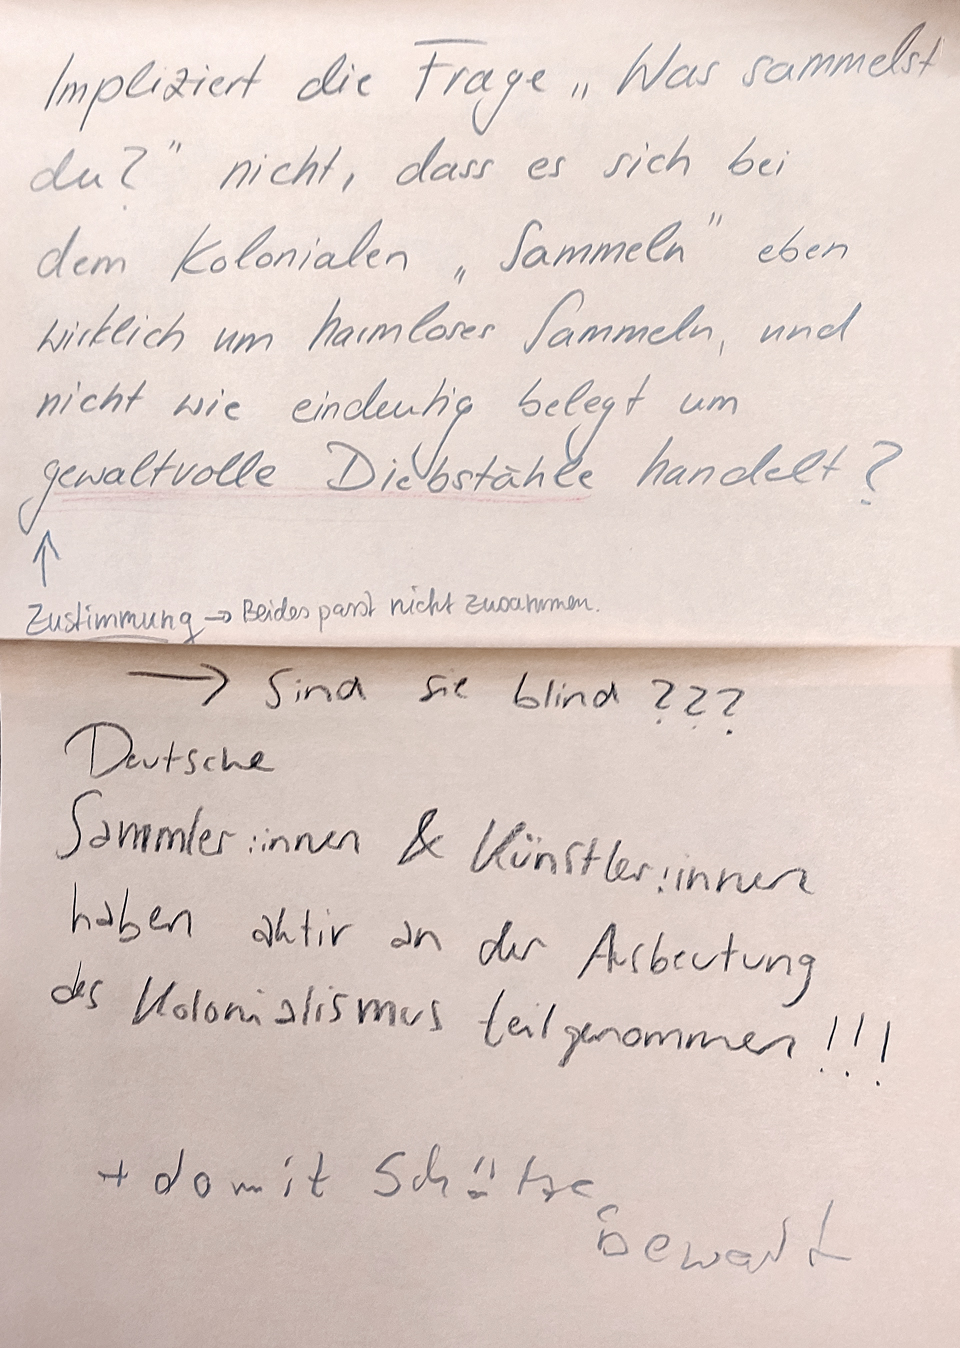 Impliziert die Frage „Was sammelst
du?" nicht, dass es sich bei
dem Kolonialen „Sammeln" eben
wirklich um harmloses Sammeln, und
nicht wie eindeutig belegt um
gewaltvolle Diebstähle handelt?
↑
Zustimmung → Beides passt nicht zusammen.
→ Sind sie blind ???
Deutsche
Sammler:innen & Künstler:innen
haben aktiv an der Ausbeutung
des Kolonialismus teilgenommen !!!
+ damit Schätze
bewart